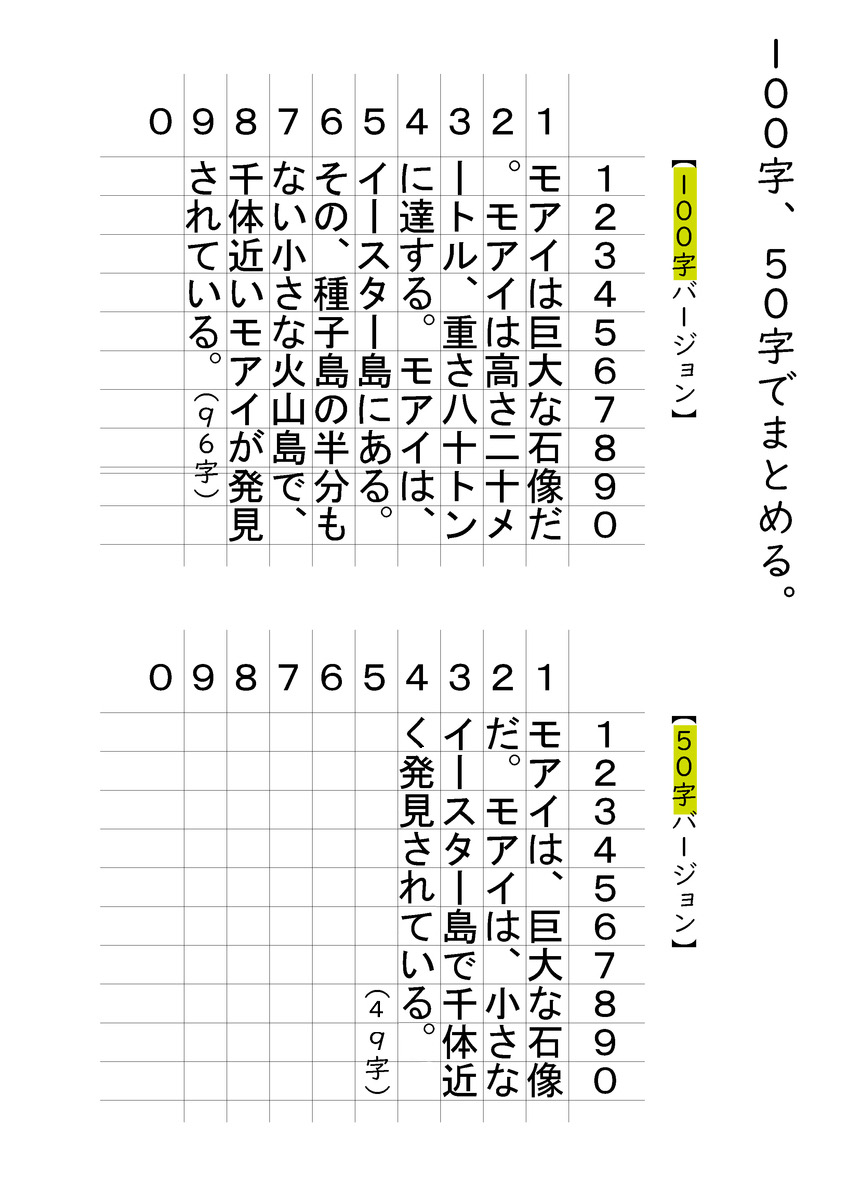 100字、50字でまとめる。
【100字バージョン】
1234567890
0 9 8 7 6 5 4 3 2 1
モアイは巨大な石像だ
。モアイは高さ二十メ
ートル、重さ八十トン
に達する。モアイは、
イースター島にある。
その、種子島の半分も
ない小さな火山島で、
千体近いモアイが発見
されている。（96字）
【50字バージョン】
1234567890
0 9 8 7 6 5 4 3 2 1
モアイは、巨大な石像
だ。モアイは、小さな
イースター島で千体近
く発見されている。
（49字）